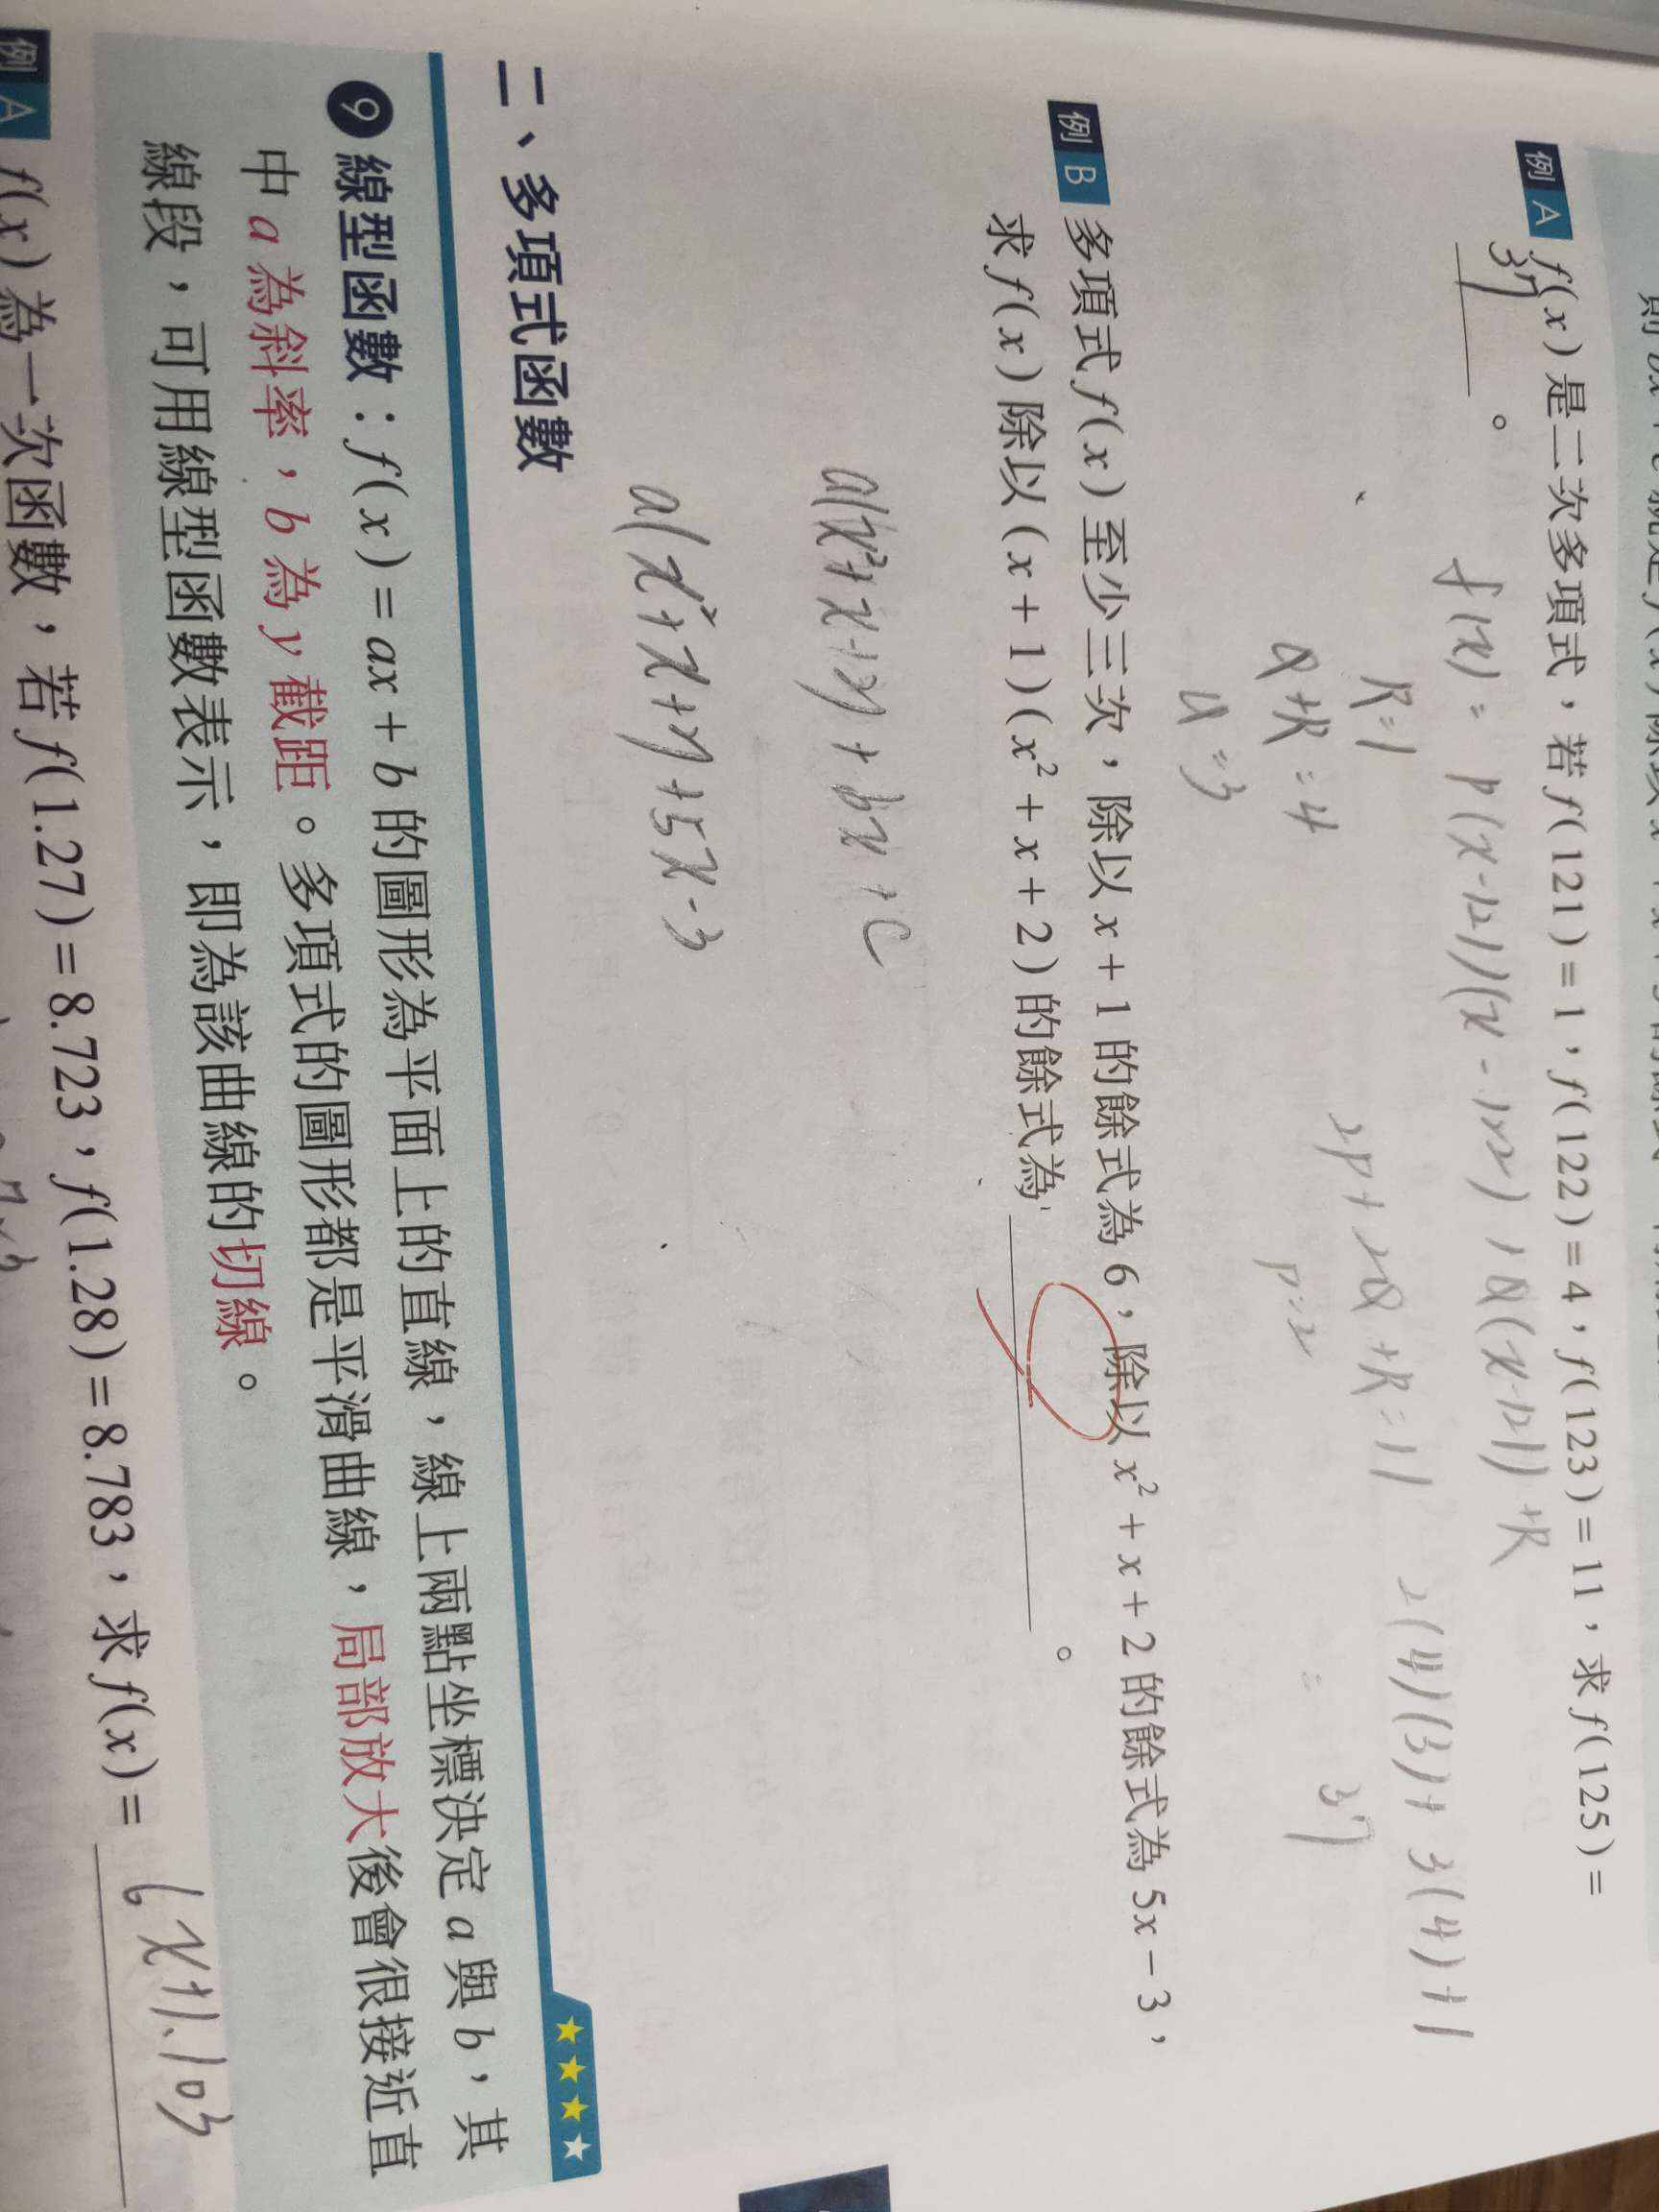 例 A f(x)是二次多項式，若f(121)=1，f(122)=4，f(123)=11，求f(125)=
37 。
f(x)= P(x-121)(x-122)+Q(x-121)+R
R=1
2P+2Q+R=11
2(4)(3)+3(4)+1
Q+R=4
P=2
= 37
Q=3
例 B 多項式f(x)至少三次，除以x+1的餘式為6，除以x²+x+2的餘式為5x-3，
求f(x)除以(x+1)(x²+x+2)的餘式為 。
a(x²+x+2)+bx+c
a(x²+x+2)+5x-3
二、多項式函數
★★★★
9 線型函數：f(x)=ax+b的圖形為平面上的直線，線上兩點坐標決定a與b，其
中a為斜率，b為y截距。多項式的圖形都是平滑曲線，局部放大後會很接近直
線段，可用線型函數表示，即為該曲線的切線。
例 A f(x)為一次函數，若f(1.27)=8.723，f(1.28)=8.783，求f(x)= 6x+1.103